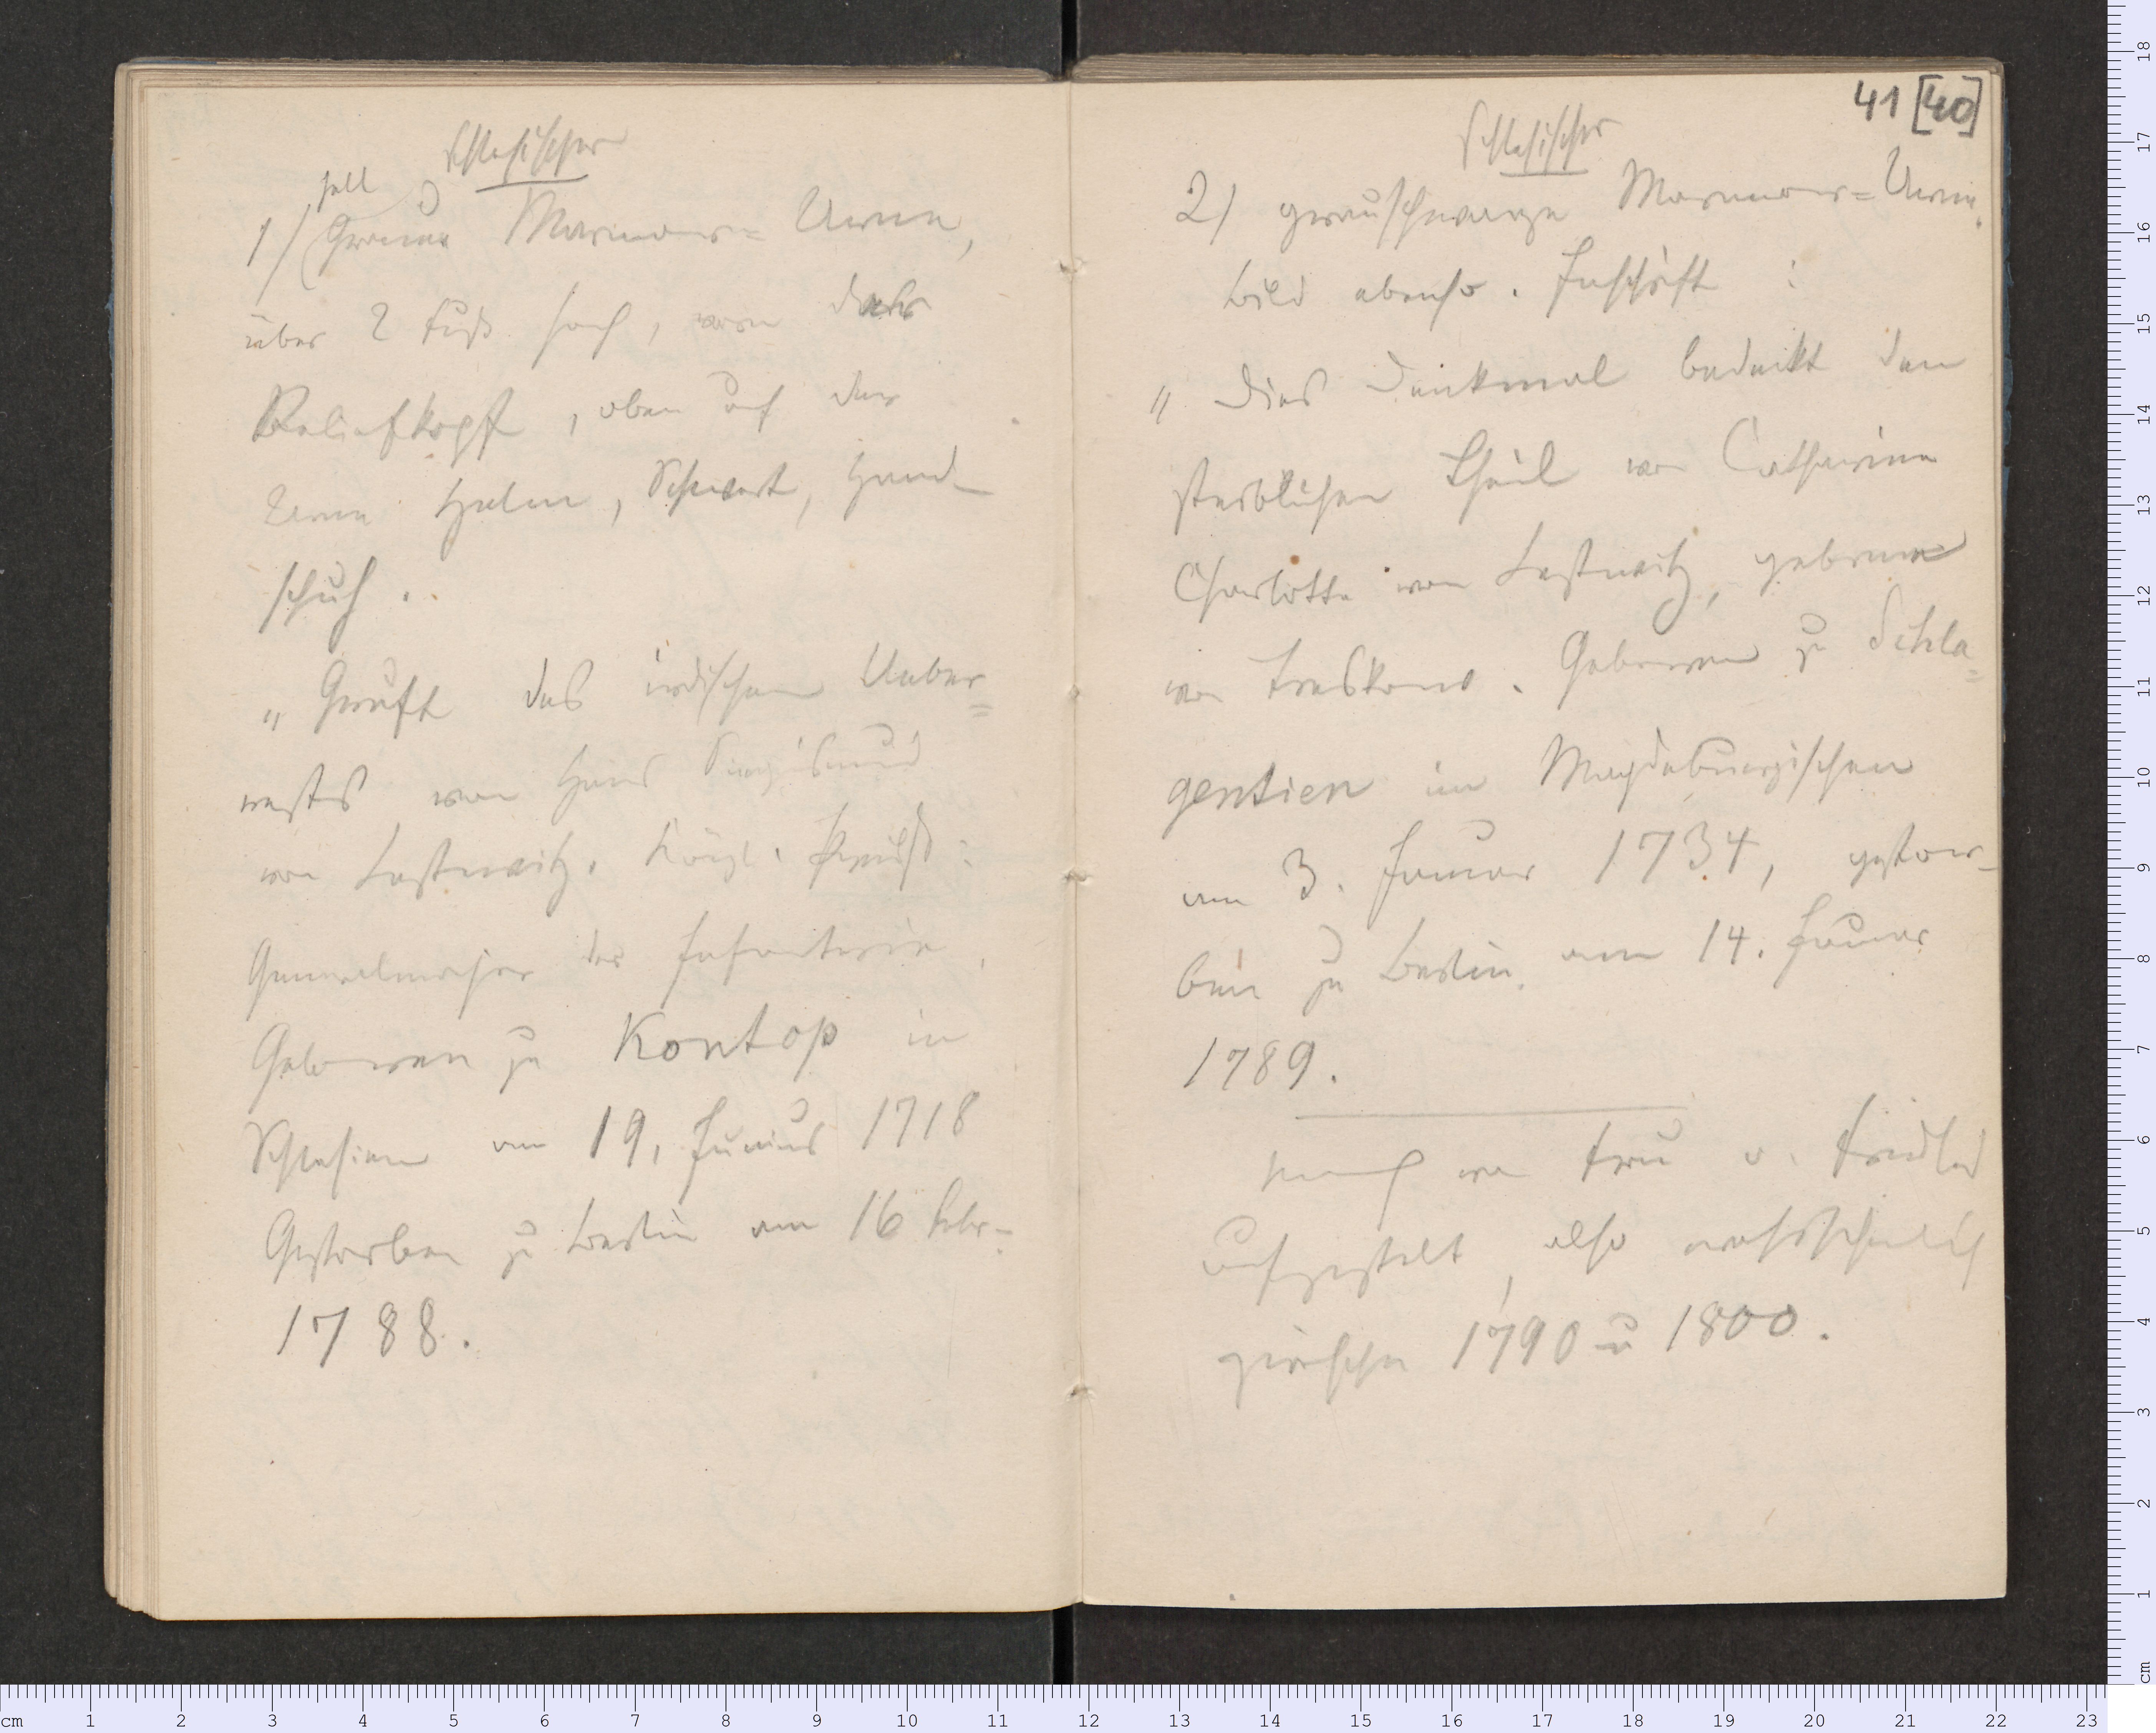 Schlesischer
hell
1/ (Grauer Marmor-Urne,
über 2 Fuß hoch, vorn das
Reliefkopf, oben auf der
Urne Helm, Schwert, Hand-
schuh.
„Gruft des irdischen Ueber=
restes von Hans Siegismund
von Lestwitz. Königl. Preuß:
Generalmajor der Infanterie.
Geboren zu Kontop in
Schlesien am 19. Junius 1718
Gestorben zu Berlin am 16 Febr.
1788.
41 [40]
Schlesischer
2) grauschwarze Marmor=Urne.
Bild ebenso. Inschrift:
„Dies Denkmal bedeckt den
sterblichen Theil von Catharina
Charlotte von Lestwitz, geborne
von Treskow. Geboren zu Schla=
gentien im Magdeburgischen
am 3. Januar 1734, gestor-
ben zu Berlin am 14. Januar
1789.
von Frau v. Friedland
aufgestellt, also wahrscheinlich
zwischen 1790 u 1800.